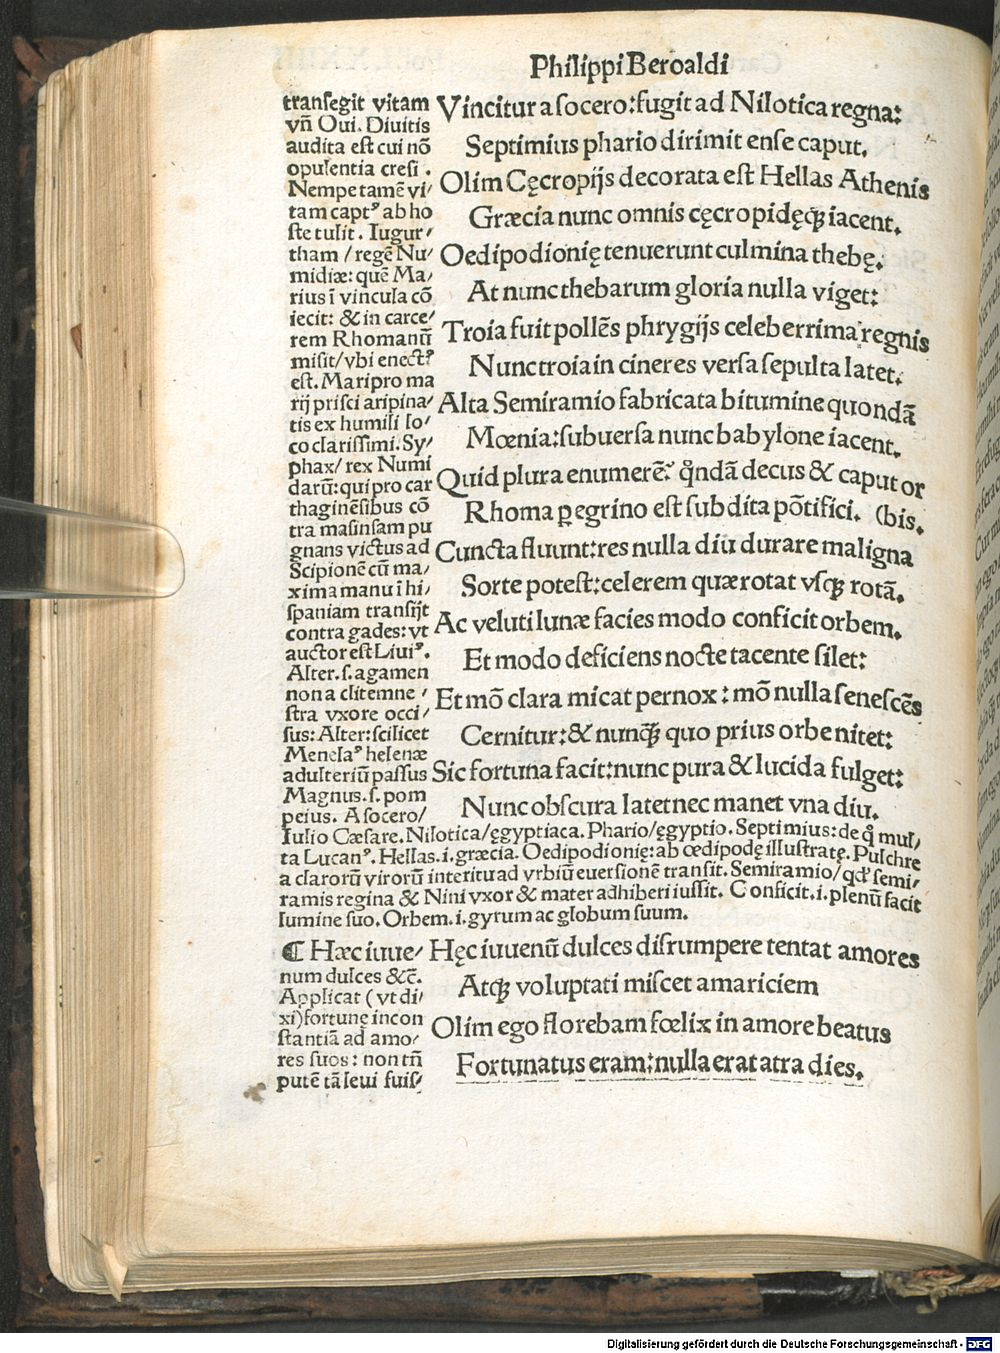 Philippi Beroaldi
tranſegit vitam
vñ Oui. Diuitis
audita eſt cui nõ
opulentia creſi.
Nempe tamẽ vi/
tam captꝰ ab ho
ſte tulit. Iugur/
tham / regẽ Nu/
midiæ: quẽ Ma/
rius ī vincula cõ
iecit: & in carce/
rem Rhomanũ
miſit/vbi enectꝰ
eſt. Mari pro ma
rij priſci aripina/
tis ex humili lo/
co clariſſimi. Sy/
phax/ rex Numi
darũ: qui pro car
thaginẽſibus cõ
tra maſinſam pu
gnans victus ad
Scipionẽ cũ ma/
xima manu ī hi/
ſpaniam tranſijt
contra gades: vt
auctor eſt Liuiꝰ.
Alter. ſ. agamen
non a clitemne/
ſtra vxore occi/
ſus: Alter: ſcilicet
Menelaꝰ helenæ
adulteriũ paſſus
Magnus. ſ. pom
peius. A ſocero/
Vincitur a ſocero: fugit ad Nilotica regna:
Septimius phario dirimit enſe caput.
Olim Cęcropijs decorata eſt Hellas Athenis
Græcia nunc omnis cęcropidęqꝫ iacent.
Oedipodionię tenuerunt culmina thebę.
At nunc thebarum gloria nulla viget:
Troia fuit pollẽs phrygijs celeberrima regnis
Nunc troia in cineres verſa ſepulta latet.
Alta Semiramio fabricata bitumine quondã
Mœnia: ſubuerſa nunc babylone iacent.
Quid plura enumerẽ? qͦndã decus & caput or
Rhoma ꝑegrino eſt ſubdita põtifici. (bis.
Cuncta fluunt: res nulla diu durare maligna
Sorte poteſt: celerem quæ rotat vſqꝫ rotã.
Ac veluti lunæ facies modo conficit orbem.
Et modo deficiens nocte tacente ſilet:
Et mõ clara micat pernox: mõ nulla ſeneſcẽs
Cernitur: & nunqꝫ quo prius orbe nitet:
Sic fortuna facit: nunc pura & lucida fulget:
Nunc obſcura latet nec manet vna diu.
Iulio Cæſare. Nilotica/ęgyptiaca. Phario/ęgyptio. Septimius: de qͦ mul/
ta Lucanꝰ. Hellas. i. græcia. Oedipodionię: ab œdipodę illuſtratę. Pulchre
a clarorũ virorũ interitu ad vrbiũ euerſionẽ tranſit. Semiramio/ qđ ſemi/
ramis regina & Nini vxor & mater adhiberi iuſſit. Conficit. i. plenũ facit
lumine ſuo. Orbem. i. gyrum ac globum ſuum.
¶ Hæc iuue/
num dulces &c̃.
Applicat (vt di/
xi) fortunę incon
ſtantiã ad amo/
res ſuos: non tñ
putẽ tã leui fuiſ/
Hęc iuuenũ dulces diſrumpere tentat amores
Atqꝫ voluptati miſcet amariciem
Olim ego florebam fœlix in amore beatus
Fortunatus eram: nulla erat atra dies.
Digitalisierung gefördert durch die Deutsche Forschungsgemeinschaft - DFG